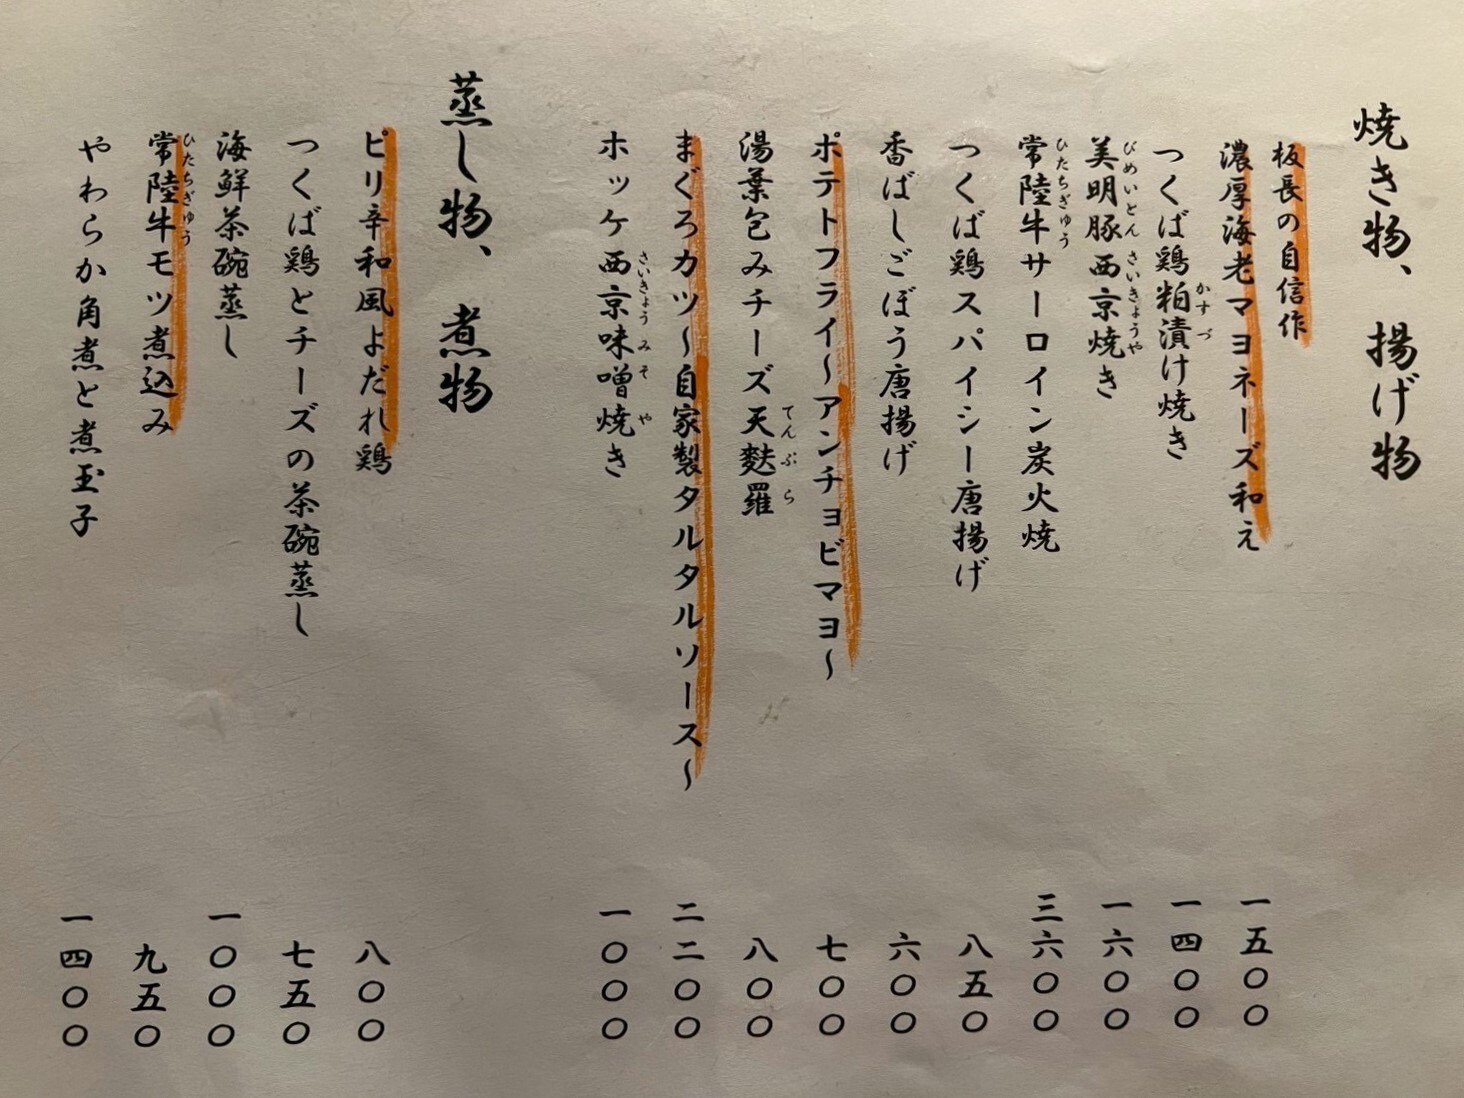 焼き物、揚げ物
板長の自信作
濃厚海老マヨネーズ和え 一五〇〇
つくば鶏粕漬け焼き 一四〇〇
かすづ
美明豚西京焼き 一六〇〇
びめいとん さいきょうや
常陸牛サーロイン炭火焼 三六〇〇
ひたちぎゅう
つくば鶏スパイシー唐揚げ 八五〇
香ばしごぼう唐揚げ 六〇〇
ポテトフライ～アンチョビマヨ～ 七〇〇
湯葉包みチーズ天麩羅 八〇〇
てんぷら
まぐろカツ～自家製タルタルソース～ 二二〇〇
ホッケ西京味噌焼き 一〇〇〇
さいきょうみそや
蒸し物、煮物
ピリ辛和風よだれ鶏 八〇〇
つくば鶏とチーズの茶碗蒸し 七五〇
海鮮茶碗蒸し 一〇〇〇
常陸牛モツ煮込み 九五〇
ひたちぎゅう
やわらか角煮と煮玉子 一四〇〇